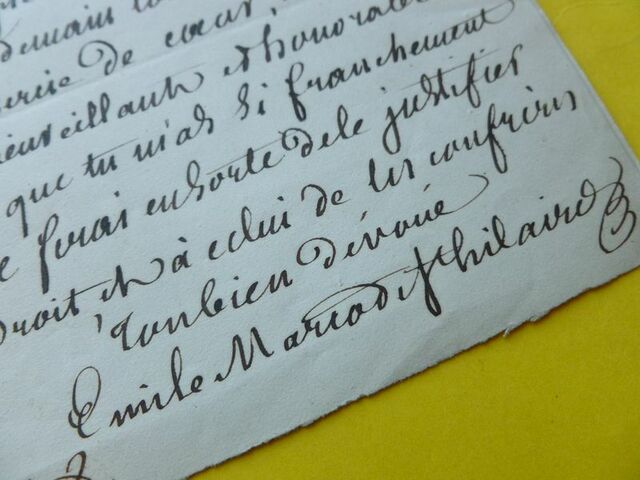 demain
de cœur,
bienveillante et honorable
que tu m'as si franchement
ferai en sorte de le justifier
droit, et à celui de tes confrères
Ton bien dévoué
Emile Marco de St hilaire